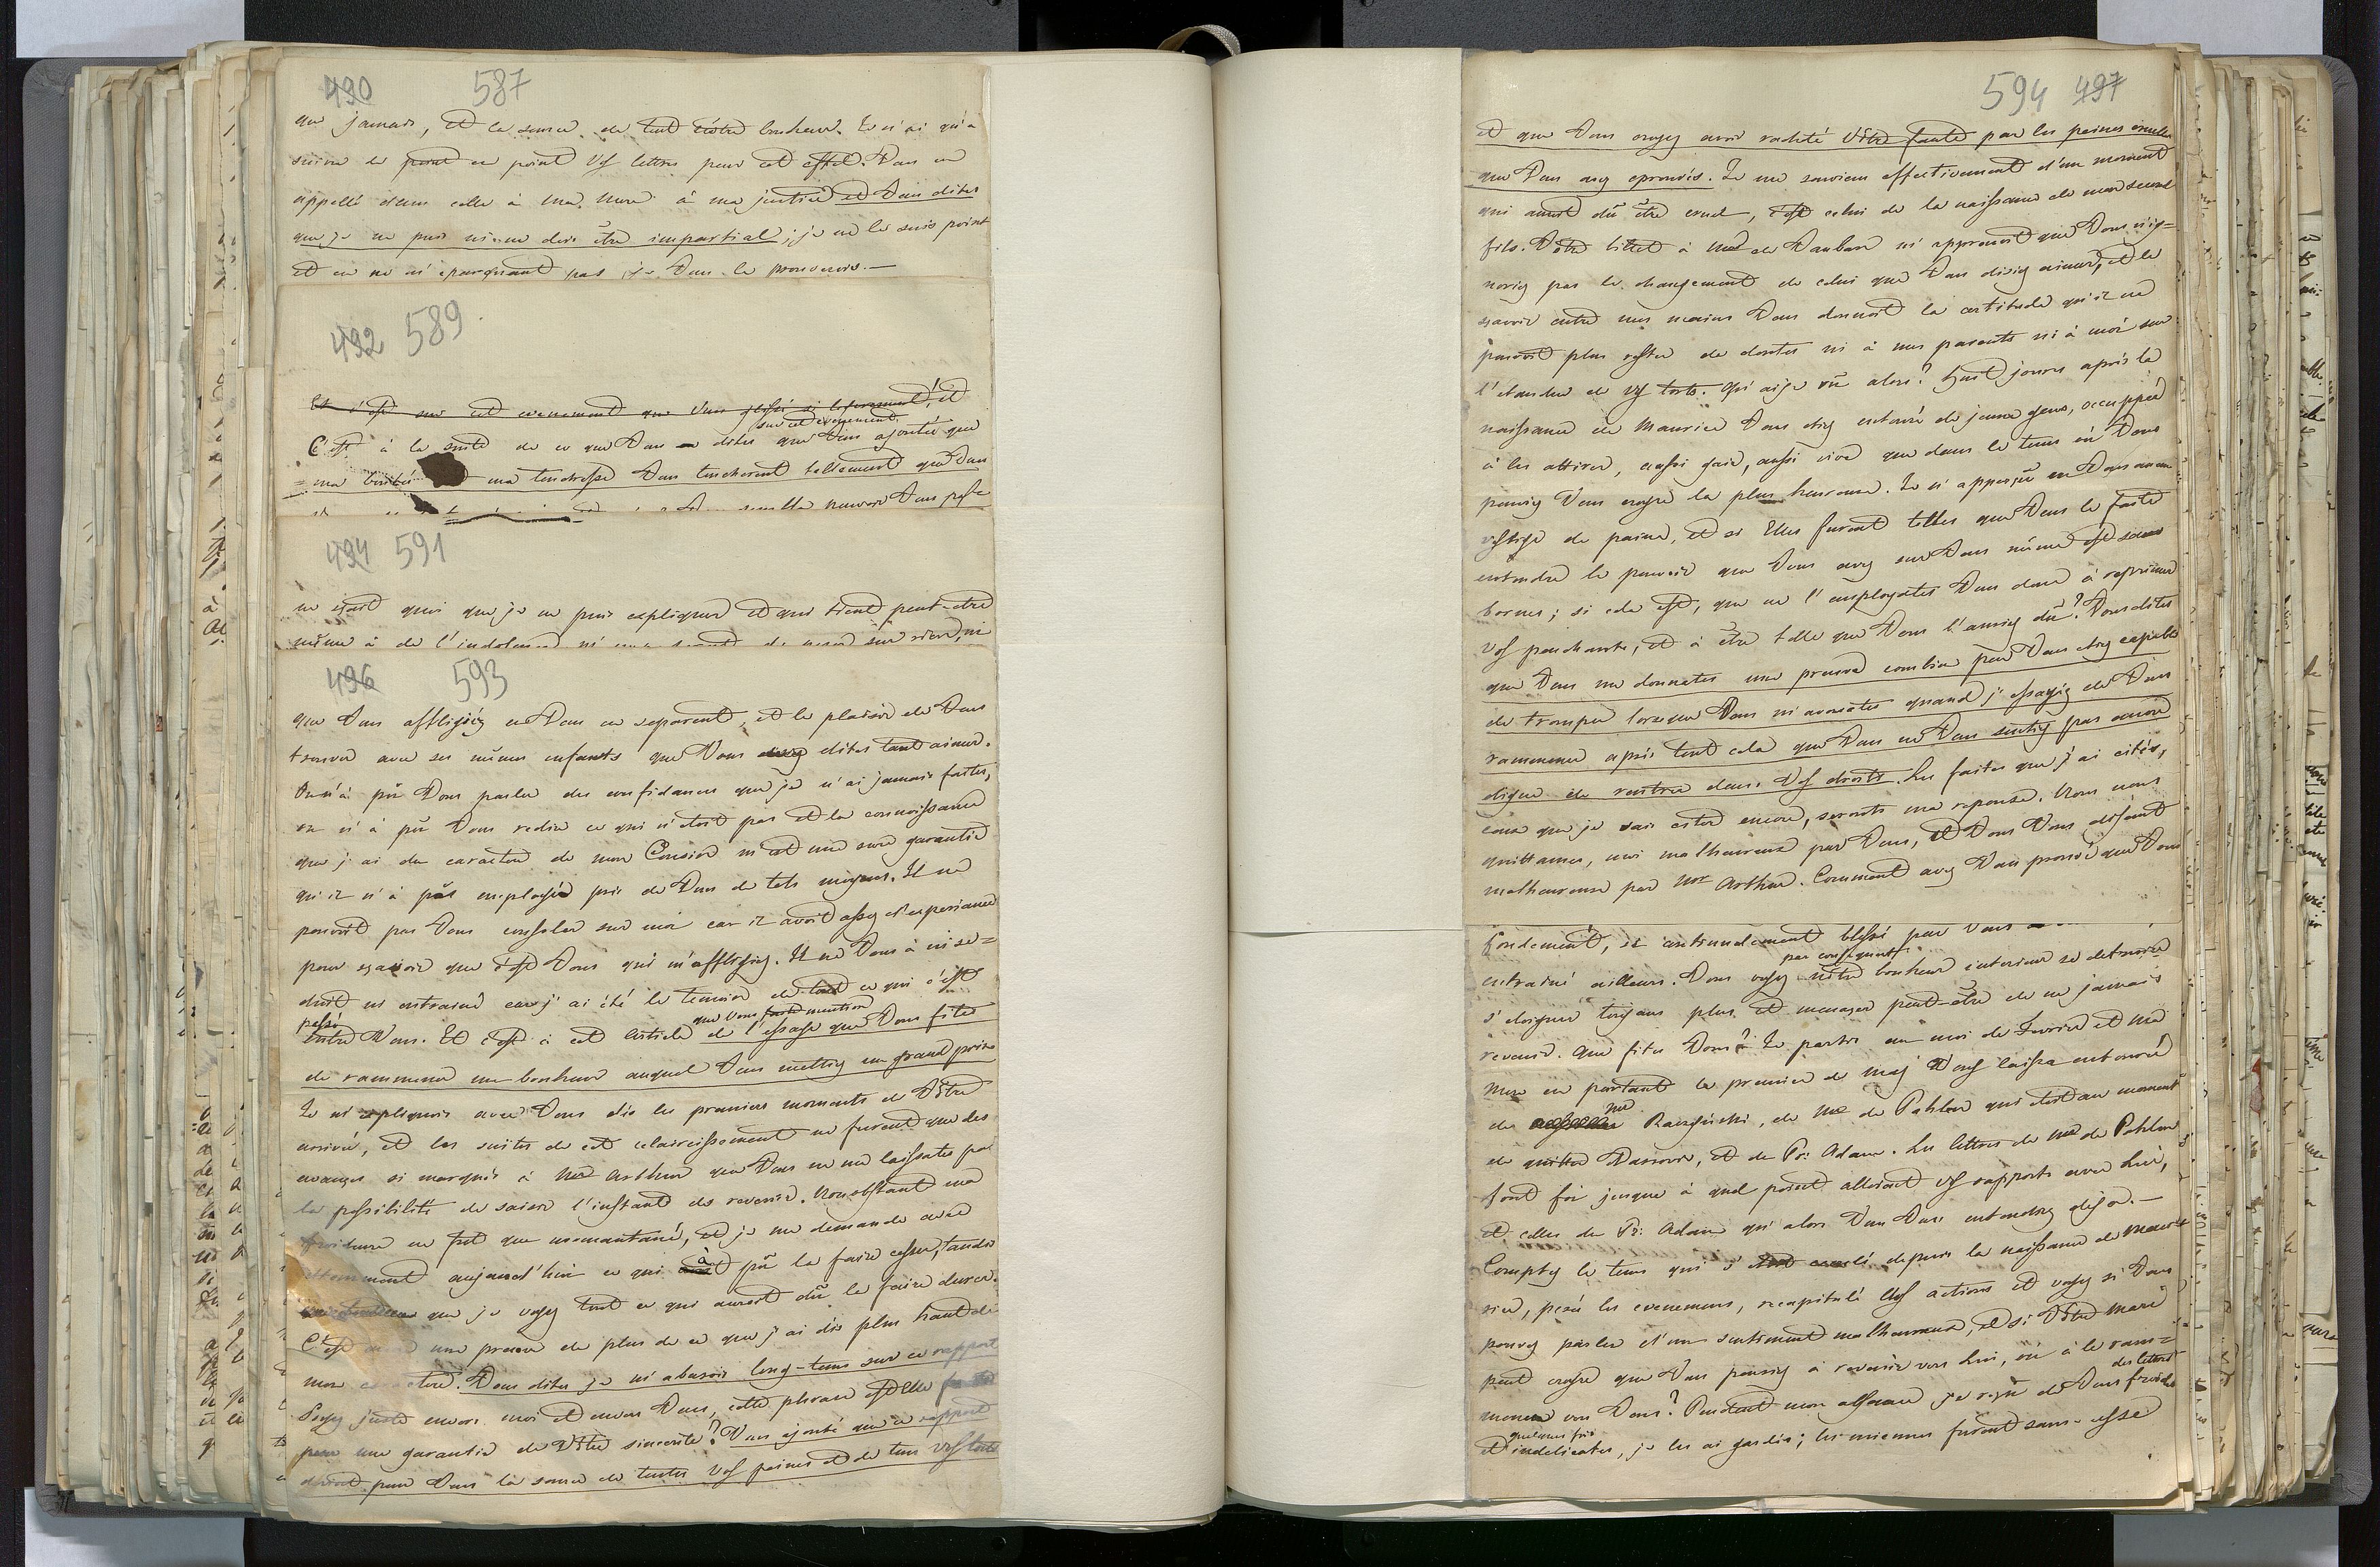 490 587
que jamais, et la source de tout vôtre bonheur. Je n'ai qu'à
suivre de point en point Vos lettres pour cet effet. Vous en
appellé dans celle à ma Mere à ma justice et Vous dites
que je ne puis ni ne dois être impartial; je ne le suis point
et en ne m'epargnant pas je Vous le prouverois.—
492 589
Et c'est sur cet evenement que Vous glissé si legerement! et
sur cet evenement
C'est à la suite de ce que Vous en dites que Vous ajoutée que
ma bonté et ma tendresse Vous toucherent tellement que Vous
494 591
ne sçait quoi que je ne puis expliquer et qui tient peut-etre
même à de l'indolence
496 593
que Vous affligiéz en Vous en separent, et le plaisir de Vous
trouver avec ses mêmes enfants que Vous dites tant aimer.
On n'à pû Vous parler des confidances que je n'ai jamais faites,
on n'à pû Vous redire ce qui n'etoit pas et la connoissance
que j'ai du caractere de mon Cousin m'est une sure garantie
qu'il n'à pas employée près de Vous de tels moyens. Il ne
pouvoit pas Vous consoler sur moi car il avoit assez d'experiance
pour sçavoir que c'est Vous qui m'affligiez. Il ne Vous à ni se=
duit ni entrainé car j'ai été le temoin de tout ce qui c'est
passé
entre Vous. Et c'est à cet article de l'essage que Vous fites
que Vous faite mention
de rammener un bonheur auquel Vous mettiez un grand prix
Je m'expliquois avec Vous dès les premiers moments de Vôtre
arrivé, et les suites de cet eclaircissement ne furent que des
avances si marqués à Mr Arthur que Vous ne me laissates pas
la possibilité de saisir l'instant de revenir. Nonobstant ma
froideur ne fut que momantané, et je me demande avec
etonnement aujourd'hui ce qui à pû la faire cesser, tandis
que je voyez tout ce qui auroit dû la faire durer.
C'est une preuve de plus de ce que j'ai dis plus haut de
mon caractere. Vous dites je m'abusois long-tems sur ce rapport
Soyez juste envers moi et envers Vous, cette phrase est elle
pour une garantie de Vôtre sincerité? Vous ajouté que ce rapport
devint pour Vous la source de toutes Vos peines et de tous Vos torts
594 497
et que Vous croyez avoir racheté Vôtre faute par les peines cruelles
que Vous avez eprouvés. Je me souviens effectivement d'un moment
qui auroit dû être cruel, c'est celui de la naissance de mon second
fils. Vôtre billet à Me de Vauban m'apprenoit que Vous n'ig=
noriez pas le changement de celui que Vous disiez aimer, et le
sçavoir entre mes mains Vous donnoit la certitude qu'il ne
pouvoit plus rester de doutes ni à mes parents ni à moi sur
l'etendue de Vos torts. Qu'ai-je vû alors? huit jours après la
naissance de Maurice Vous etiez entouré de jeunes gens, occuppée
à les attirer, aussi gaie, aussi vive que dans le tems où Vous
pouviez Vous croire la plus heureuse. Je n'apperçû en Vous aucun
vestige de peine, et si Elles furent telles que Vous le faite
entendre le pouvoir que Vous avez sur Vous même est sans
bornes; si cela est, que ne l'employates Vous donc à reprimer
Vos penchants, et à être telle que Vous l'auriez dû? Vous dites
que Vous me donnates une preuve combien peu Vous etiez capable
de tromper lorsque Vous m'avouates quand j'essayiez de Vous
rammener après tout cela que Vous ne Vous sentiez pas encore
digne de rentrer dans Vos droits. Les faites que j'ai cités,
ceux que je vais citer encore, seronts ma reponse. Nous nous
quittames, moi malheureux par Vous, et Vous Vous disant
malheureuse par Mr Arthur. Comment avez Vous prouvé que Vous
froidement, si continuelement blessé par Vous
par conséquent
entrainé ailleurs. Vous voyez nôtre bonheur interieur se detruire
s'eloigner toujours plus et menacer peut-être de ne jamais
revenir. Que fites Vous? Je partis au moi de Fevrier et Ma
Mere en partant le premier de Maj Vous laissa entouré
de Me Raczyński, de Me de Pahlen qui etoit au moment
de quitter Varsovie, et du Pr: Adam. Les lettres de Me de Pahlen
font foi jusque à quel point alloient Vos rapports avec Lui,
et celles du Pr: Adam qu'alors Vous Vous entendiez déja.—
Comptez le tems qui s'est ecoulé depuis la naissance de Mau=
rice, pesée les evenemens, recapitulé Vos actions et voyez si Vous
pouvez parler d'un sentiment malheureux, et si Vôtre Mari
peut croire que Vous pensiez à revenir vers Lui, où à le ram=
mener vers Vous? Pendant mon absence j'ai reçu de Vous des lettres froides
quelques fois
et indelicates, je les ai gardés; les miennes furent sans-cesse